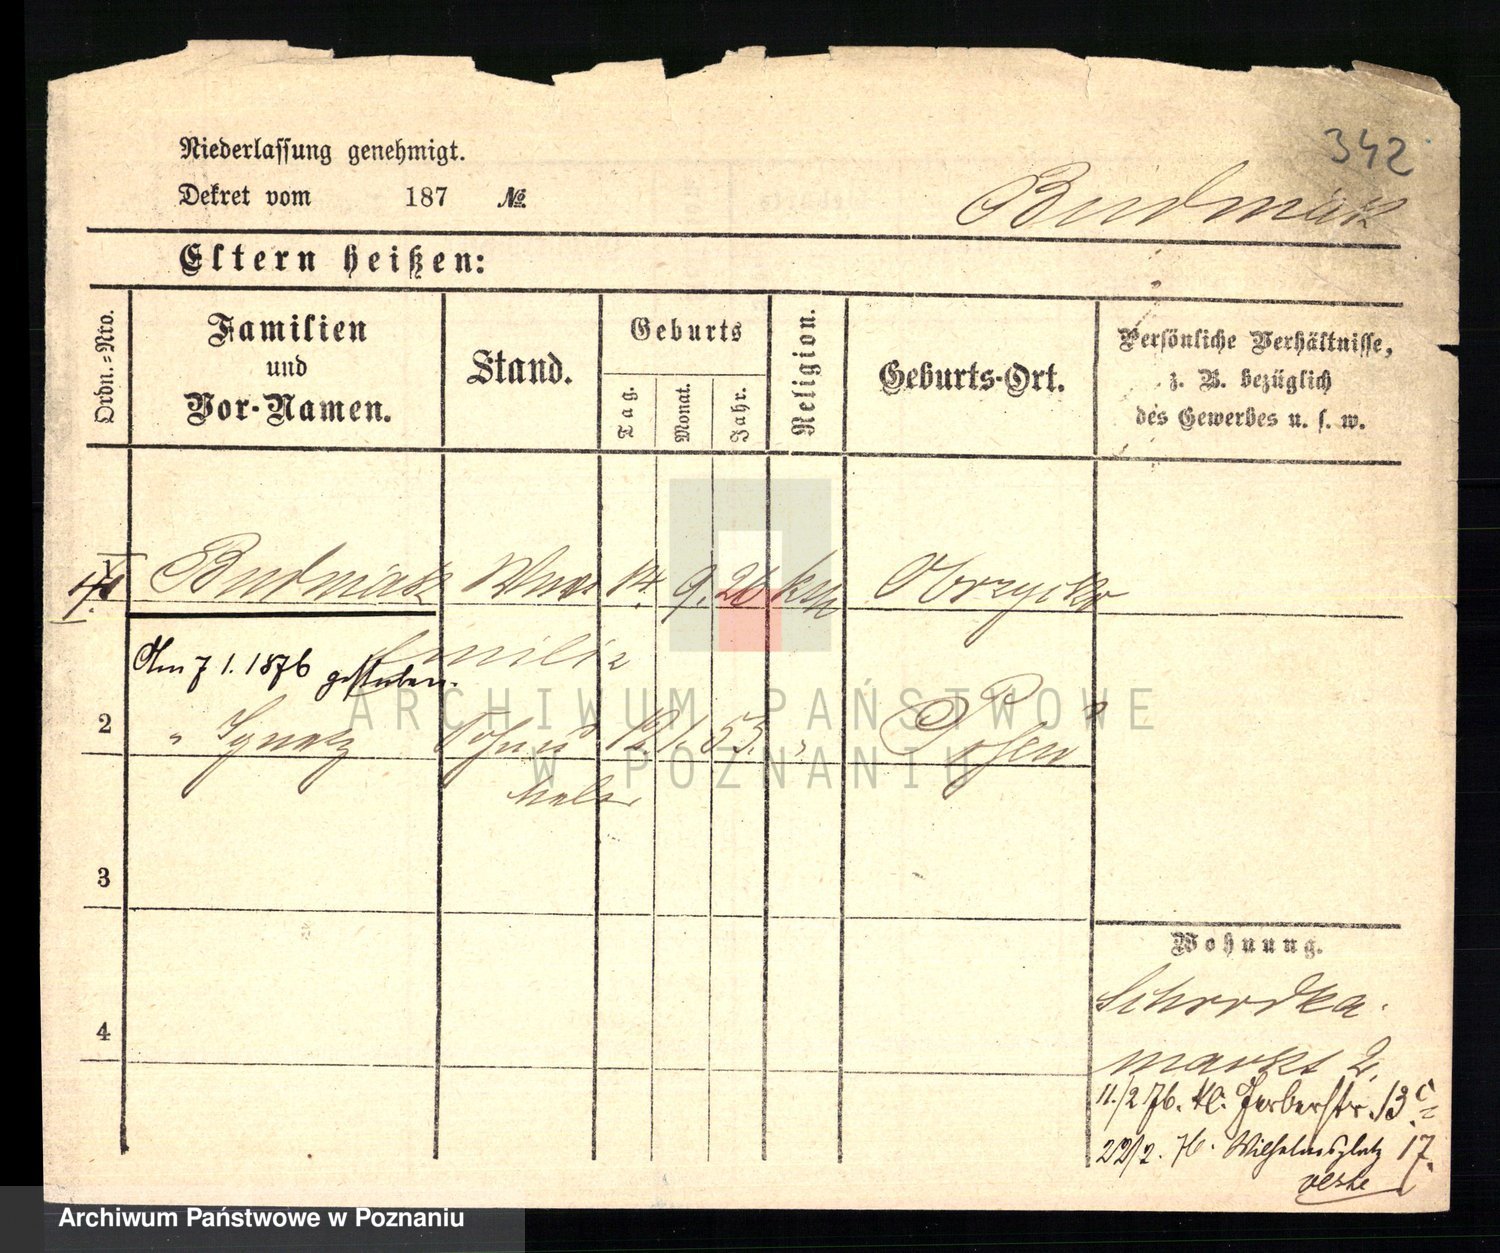 342
Niederlassung genehmigt.
Dekret vom 187 №
Budniak
Eltern heißen:
Ordn.-Nro.
Familien
und
Vor-Namen.
Stand.
Geburts
Tag.
Monat.
Jahr.
Religion.
Geburts-Ort.
Persönliche Verhältnisse,
z. B. bezüglich
des Gewerbes u. s. w.
1 Budniak Wwe 14. 9. 26 kth Obrzycko
Emilie
Am 7 1. 1876 gestorben.
2 " Ignatz Sohn 19. 1. 53. " Posen
Maler
ARCHIWUM PAŃSTWOWE
W POZNANIU
3
4
Wohnung.
Schrodka.
markt 2.
11./2 76. kl. Gerberstr. 13 c
22/2. 76. Wilhelmsplatz 17.
Archiwum Państwowe w Poznaniu